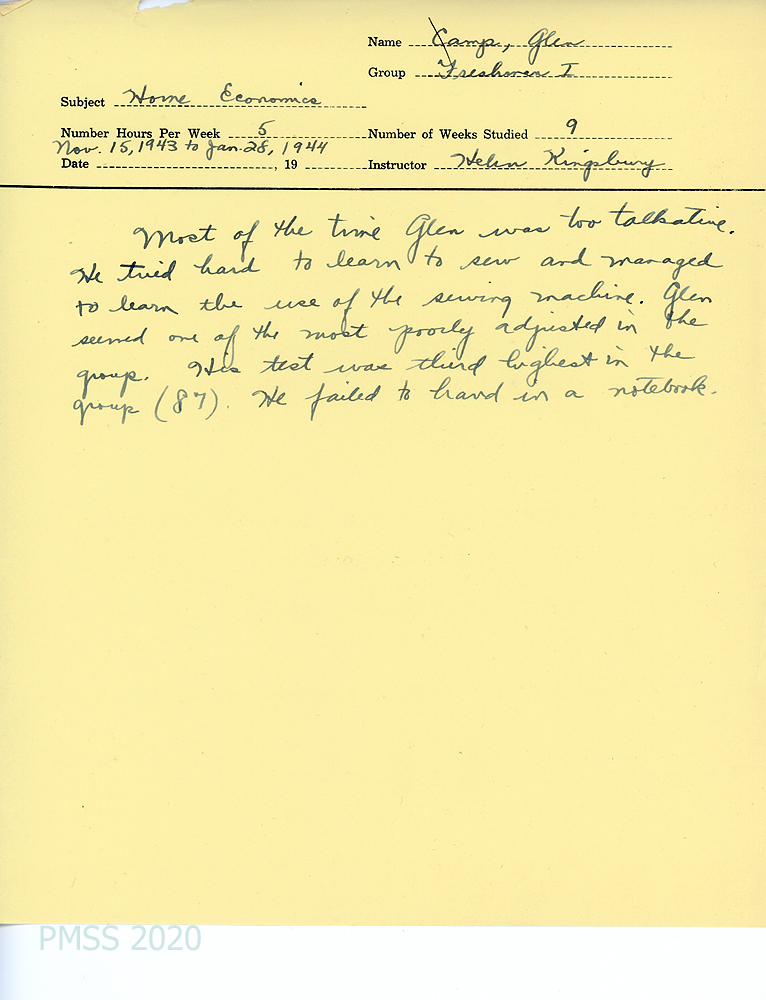 Name Camp, Glen
Group Freshmen I
Subject Home Economics
Number Hours Per Week 5 Number of Weeks Studied 9
Nov. 15, 1943 to Jan. 28, 1944
Date , 19 Instructor Helen Kingsbury
Most of the time Glen was too talkative.
He tried hard to learn to sew and managed
to learn the use of the sewing machine. Glen
seemed one of the most poorly adjusted in the
group. His test was third highest in the
group (87). He failed to hand in a notebook.
PMSS 2020